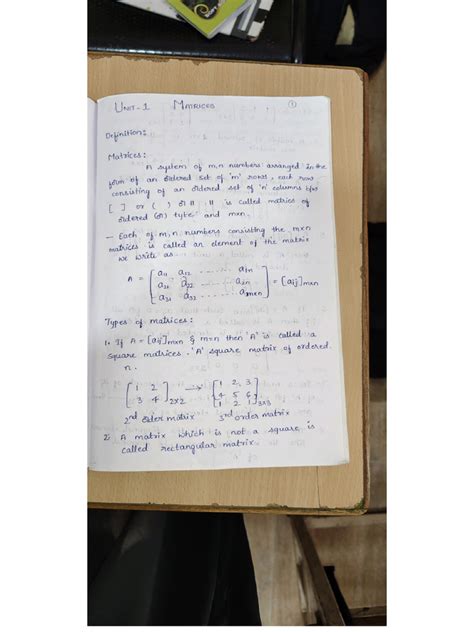 UNIT-1 MATRICES ①
Definition:
Matrices:
A system of m,n numbers arranged in the
form of an ordered set of 'm' rows, each row
consisting of an ordered set of 'n' columns b/w
[ ] or ( ) or || || is called matrics of
ordered (or) type and mxn.
- Each of m,n numbers consisting the mxn
matrices is called an element of the matrix
we write as
A = [ a11 a12 ........ a1n
a21 a22 ........ a2n
a31 a32 ........ amxn ] = [aij]mxn
Types of matrices:
1. If A = [aij]mxn & m=n then 'A' is called a
square matrices. 'A' square matrix of ordered
n.
[ 1 2 → [ 1 2 3
3 4 ]2x2 4 5 6
1 2 1 ]3x3
2nd order matrix 3rd order matrix
2. A matrix which is not a square is
called rectangular matrix.